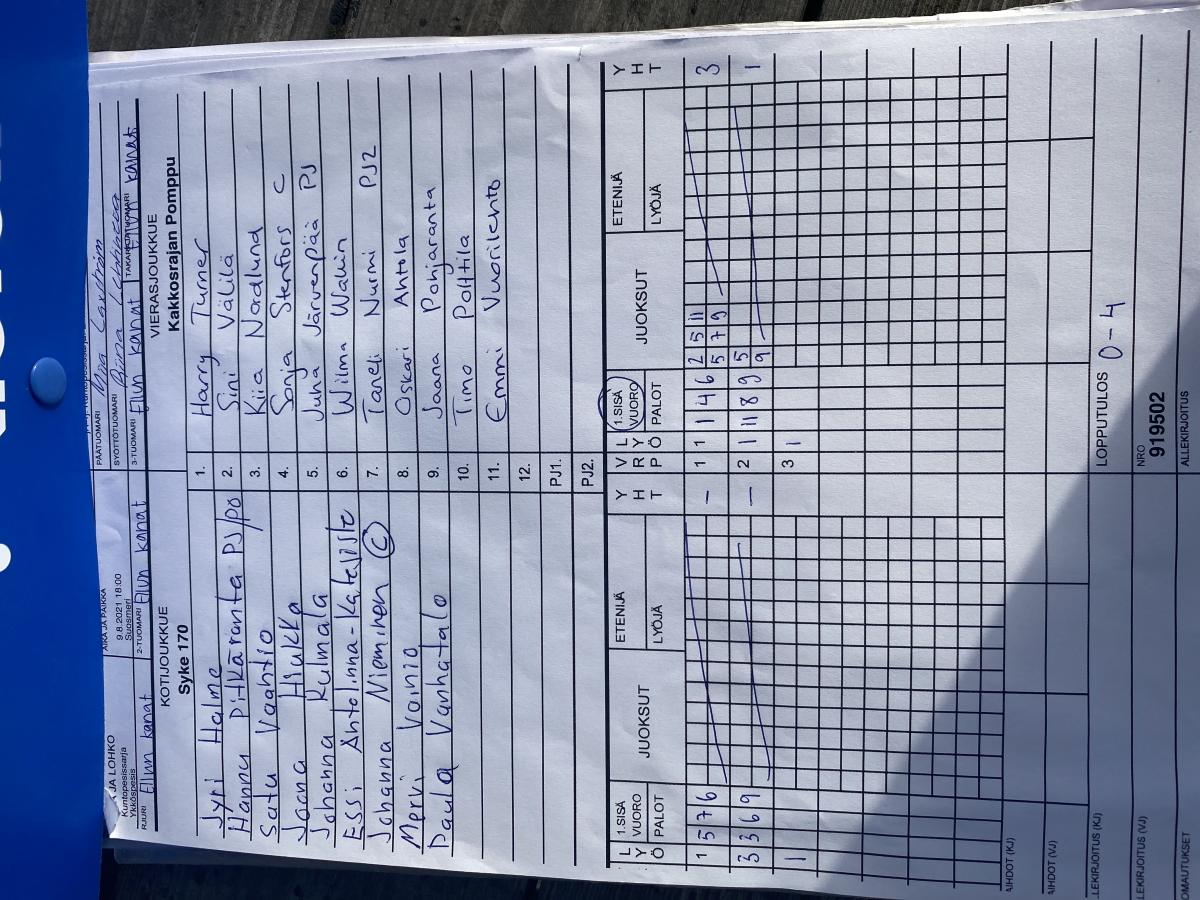 JA LOHKO
Kuntopesissarja
Ykköspesis
AIKA JA PAIKKA
9.8.2021 18:00
Suosmeri
PÄÄTUOMARI
SYÖTTÖTUOMARI
RJURI Ellun kanat
2-TUOMARI Ellun kanat
3-TUOMARI Ellun kanat
TAKARAJATUOMARI Ellun kanat
KOTIJOUKKUE
Syke 170
VIERASJOUKKUE
Kakkosrajan Pomppu
Jyri Halme 1. Harry Turner
Hannu Pitkäranta PJ/PO 2. Sini Välilä
Satu Vaahtio 3. Kiia Nordlund
Jaana Hiukka 4. Sonja Stenfors C
Johanna Kulmala 5. Juha Järvenpää PJ
Essi Antolinna- 6. Wilma Wallin
Johanna Nieminen C 7. Taneli Nurmi PJ2
Mervi Vainio 8. Oskari Ahtola
Paula Vanhatalo 9. Jaana Pohjaranta
10. Timo Polttila
11. Emmi Vuorilehto
12.
PJ1.
PJ2.
LYÖ 1.SISÄ VUORO PALOT JUOKSUT ETENIJÄ LYÖJÄ YHT VRP LYÖ 1.SISÄ VUORO PALOT JUOKSUT ETENIJÄ LYÖJÄ YHT
1 5 7 6 – 1 1 1 4 6 2 5 11 3
5 7 9
3 3 6 9 – 2 1 11 8 9 5 1
9
1 3 1
AIHDOT (KJ)
AIHDOT (VJ)
LEKIRJOITUS (KJ) LOPPUTULOS 0-4
LEKIRJOITUS (VJ) NRO
919502
OMAUTUKSET ALLEKIRJOITUS